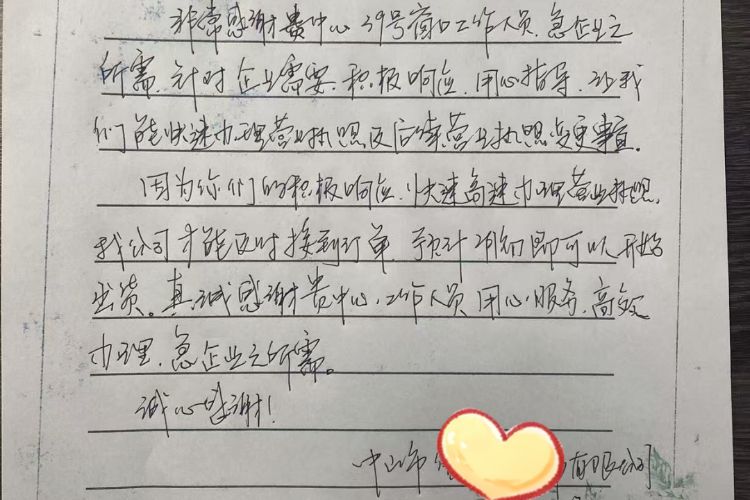 非常感谢贵中心39号窗口工作人员,急企业之
所需,针对企业需要,积极响应,用心指导,让我
们能快速办理营业执照及后续营业执照变更事宜。
因为你们的积极响应,快速高速办理营业执照,
我公司才能及时接到订单,预计月初即可以开始
出货。真诚感谢贵中心,工作人员用心服务,高效
办理,急企业之所需。
诚心感谢!
中山市 有限公司